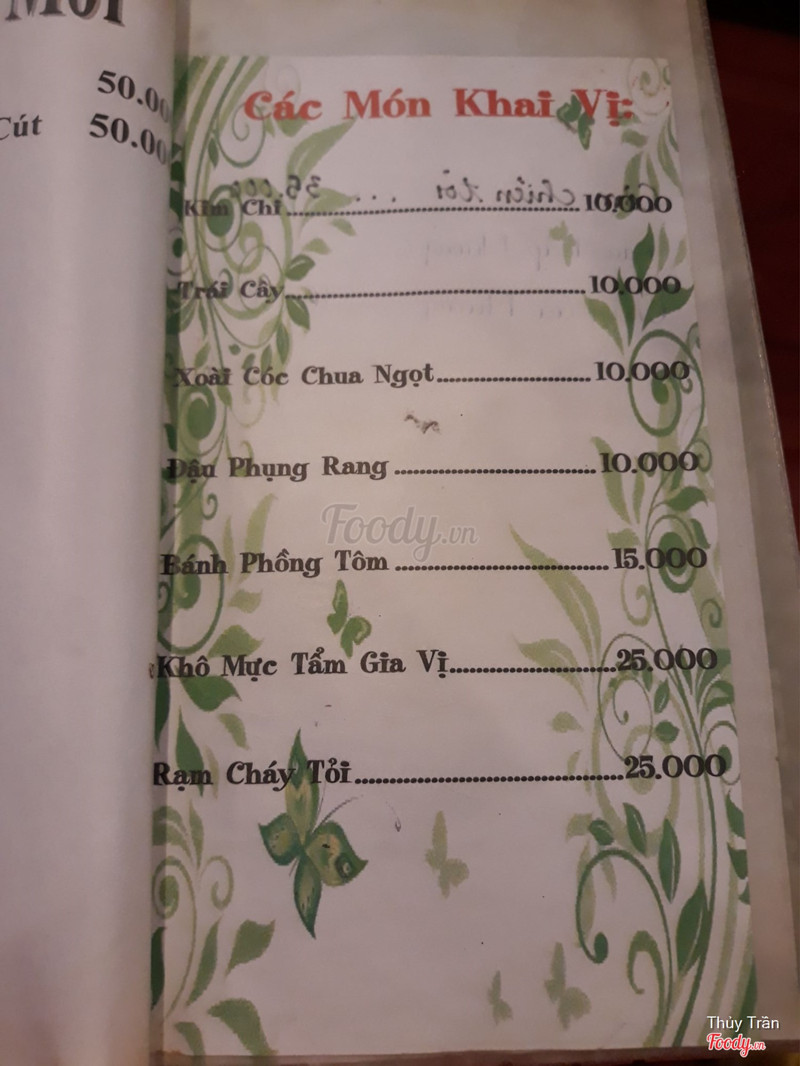 MỒI
50.00
Cút 50.00
Các Món Khai Vị:
Kim Chi 10.000
Trái Cây 10.000
Xoài Cóc Chua Ngọt 10.000
Đậu Phụng Rang 10.000
Foody.vn
Bánh Phồng Tôm 15.000
Khô Mực Tẩm Gia Vị 25.000
Rạm Cháy Tỏi 25.000
Thủy Trần
Foody.vn